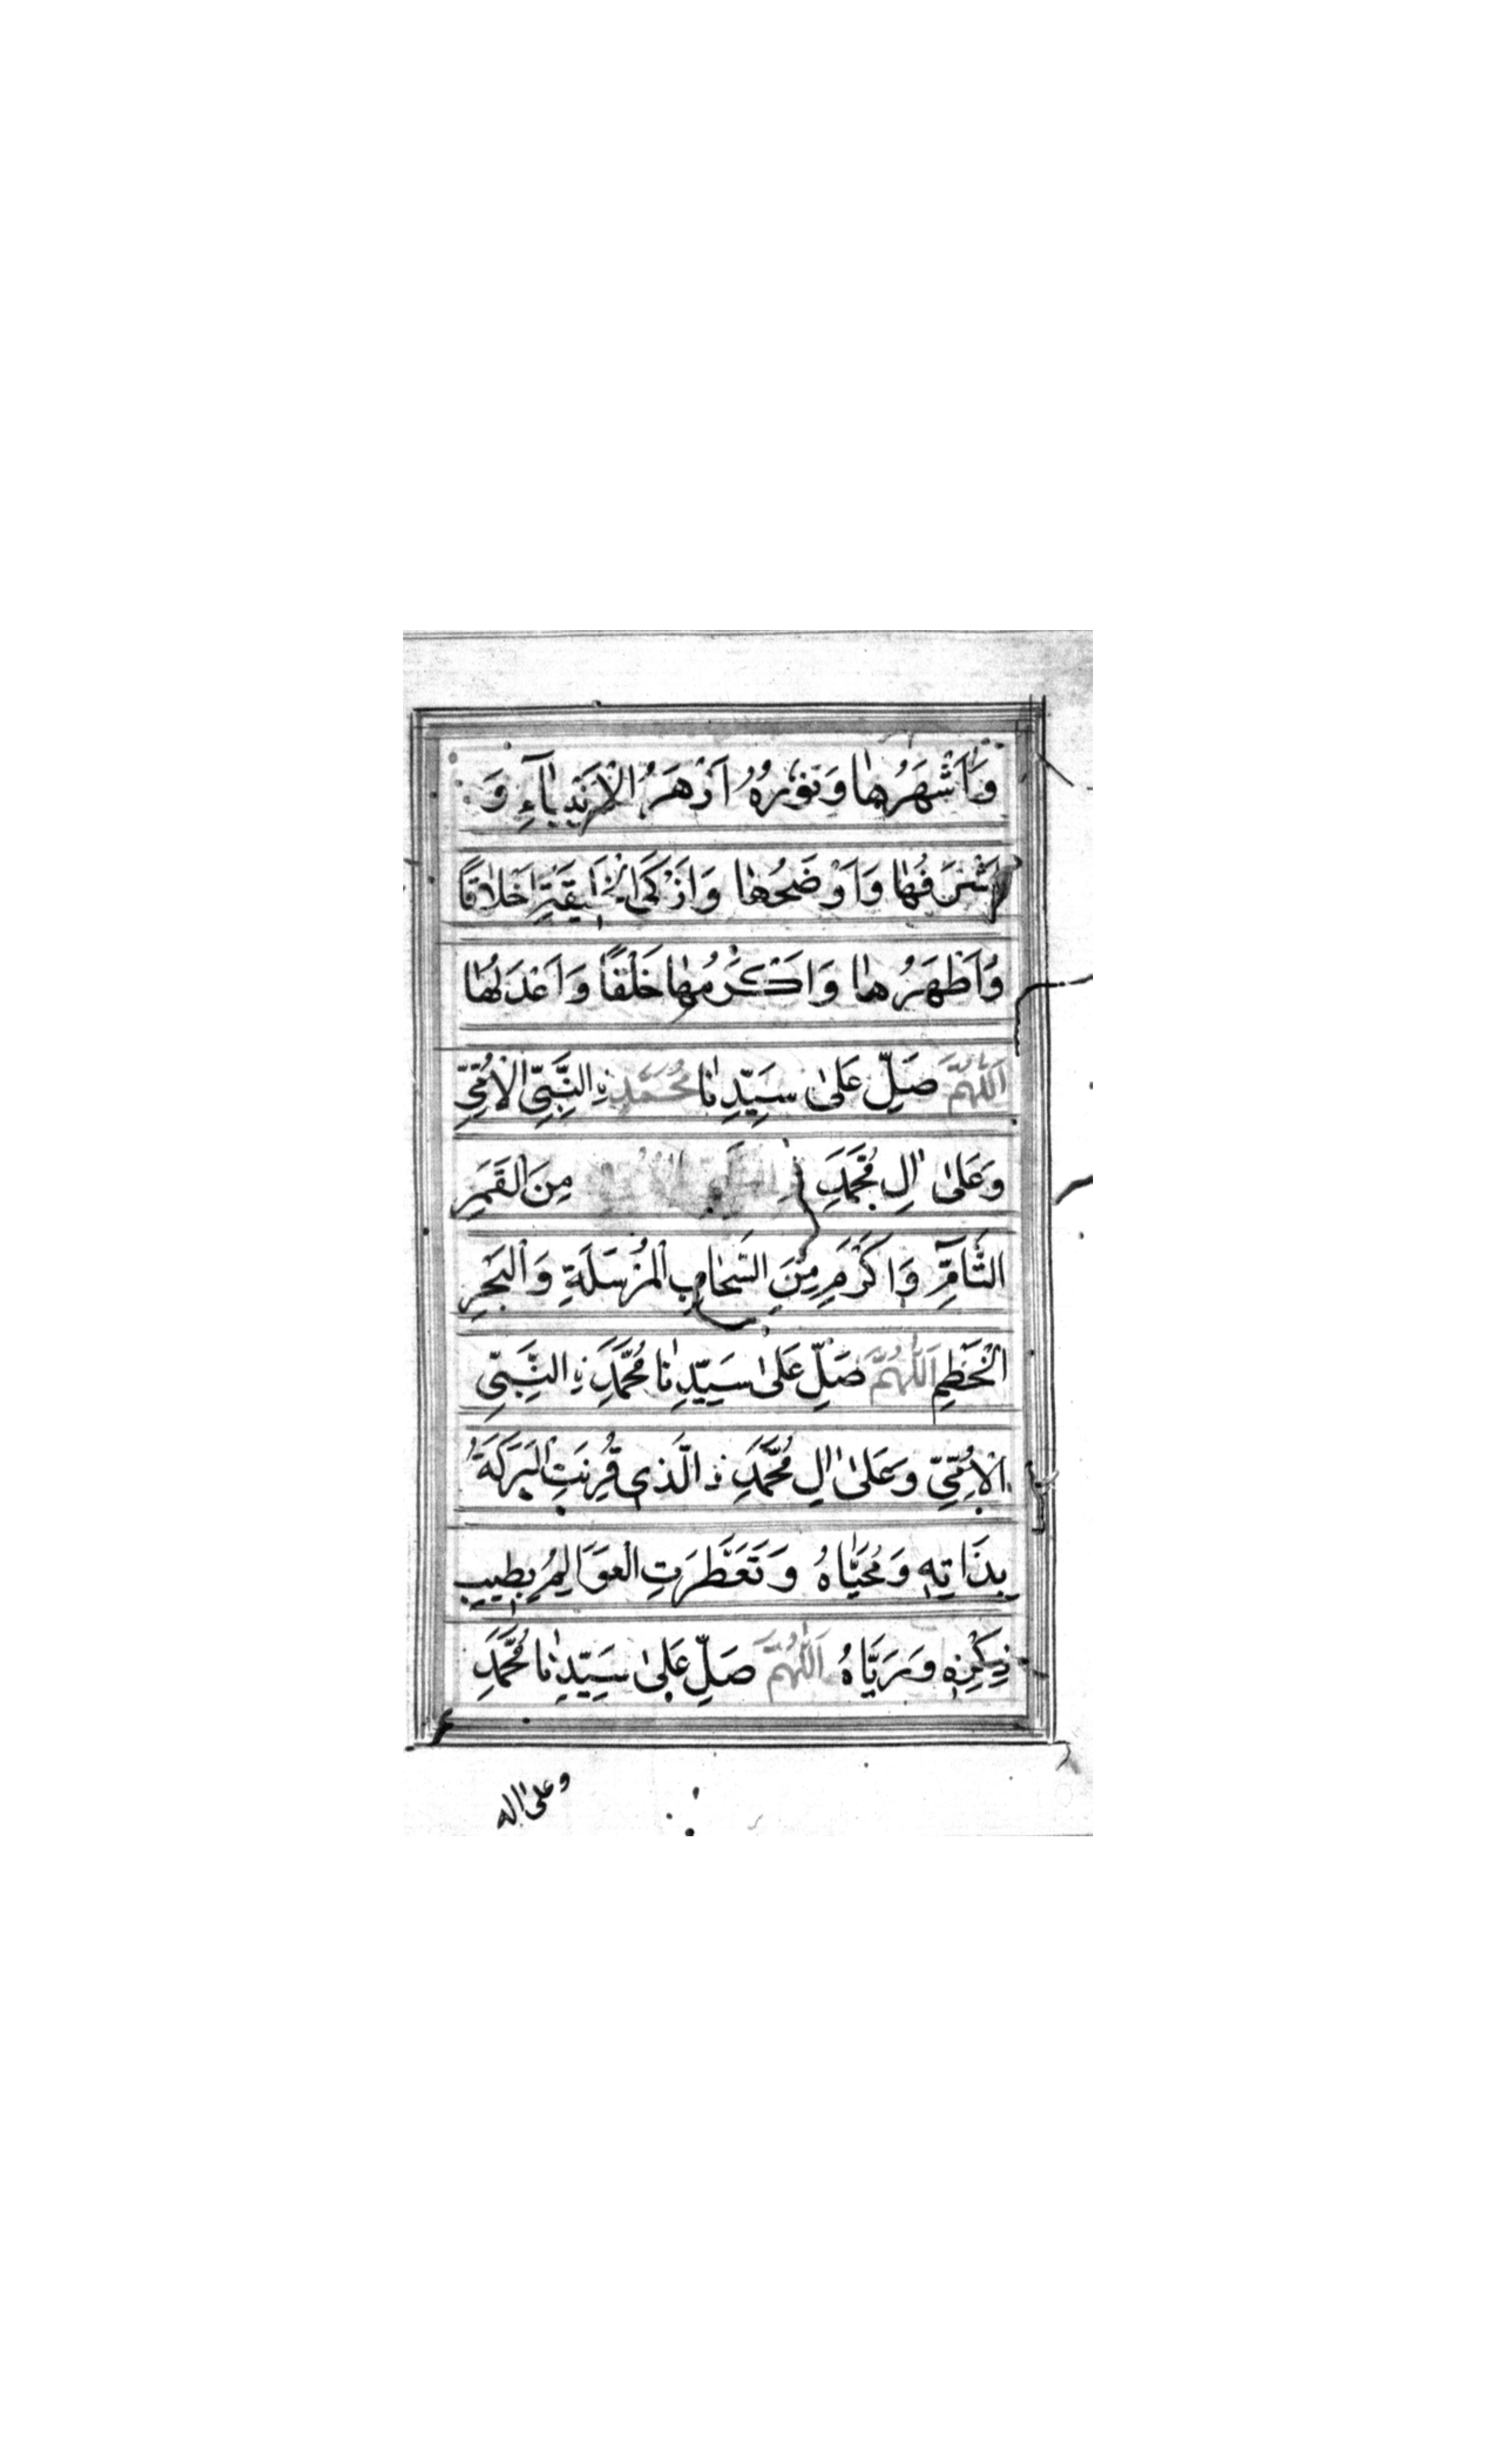 وَاَشْهَرُهَا وَنُوْرُهُ اَزْهَرُ الْاَنْبِيَآءِ وَ
اَشْرَفُهَا وَاَوْضَحُهَا وَاَزْكَى الْخَلِيْقَةِ اَخْلَاقًا
وَاَطْهَرُهَا وَاَكْرَمُهَا خَلْقًا وَاَعْدَلُهَا
اَللّٰهُمَّ صَلِّ عَلٰى سَيِّدِنَا مُحَمَّدِ نِ النَّبِيِّ الْاُمِّيِّ
وَعَلٰى اٰلِ مُحَمَّدٍ مِنَ الْقَمَرِ
التَّآمِّ وَاَكْرَمِ مِنَ السَّحَابِ الْمُرْسَلَةِ وَالْبَحْرِ
الْخَطِمِ اَللّٰهُمَّ صَلِّ عَلٰى سَيِّدِنَا مُحَمَّدِ نِ النَّبِيِّ
الْاُمِّيِّ وَعَلٰى اٰلِ مُحَمَّدِ نِ الَّذِي قُرِنَتِ الْبَرَكَةُ
بِذَاتِهِ وَمُحَيَّاهُ وَتَعَطَّرَتِ الْعَوَالِمُ بِطِيْبِ
ذِكْرِهِ وَرَيَّاهُ اَللّٰهُمَّ صَلِّ عَلٰى سَيِّدِنَا مُحَمَّدٍ
وعلى اله